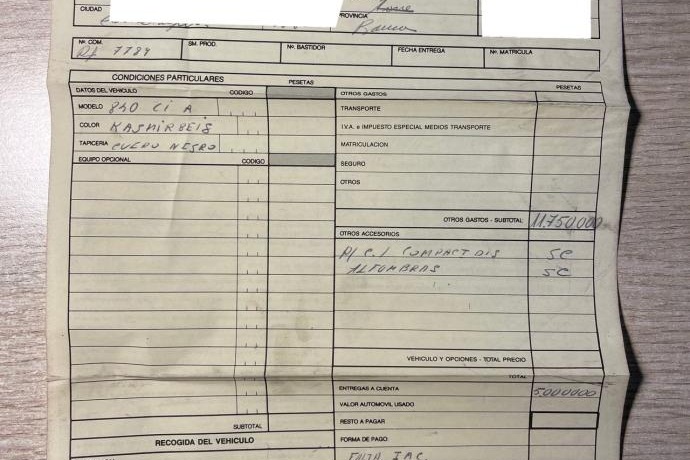 CIUDAD
PROVINCIA
Nº. COM. SM. PROD. Nº. BASTIDOR FECHA ENTREGA Nº. MATRICULA
Rf 7784
CONDICIONES PARTICULARES PESETAS PESETAS
DATOS DEL VEHICULO CODIGO OTROS GASTOS
MODELO 840 Ci A TRANSPORTE
COLOR KASMIRBEIS I.V.A. e IMPUESTO ESPECIAL MEDIOS TRANSPORTE
TAPICERIA CUERO NEGRO MATRICULACION
EQUIPO OPCIONAL CODIGO SEGURO
OTROS
OTROS GASTOS - SUBTOTAL 11.750.000
OTROS ACCESORIOS
R/C.1 COMPACT DIS SC
ALFOMBRAS SC
VEHICULO Y OPCIONES - TOTAL PRECIO
TOTAL
ENTREGAS A CUENTA 5000000
VALOR AUTOMOVIL USADO
SUBTOTAL RESTO A PAGAR
RECOGIDA DEL VEHICULO FORMA DE PAGO